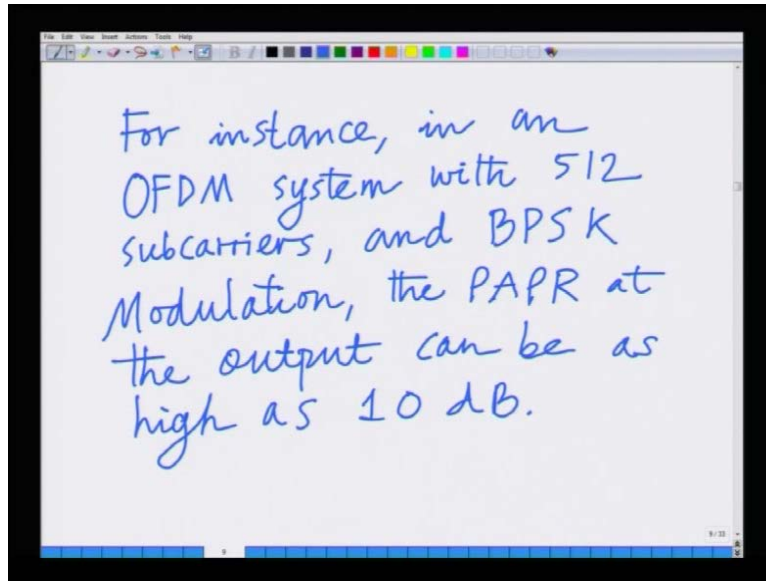 File Edit View Insert Actions Tools Help
B I
For instance, in an
OFDM system with 512
subcarriers, and BPSK
Modulation, the PAPR at
the output can be as
high as 10 dB.
9/33
9